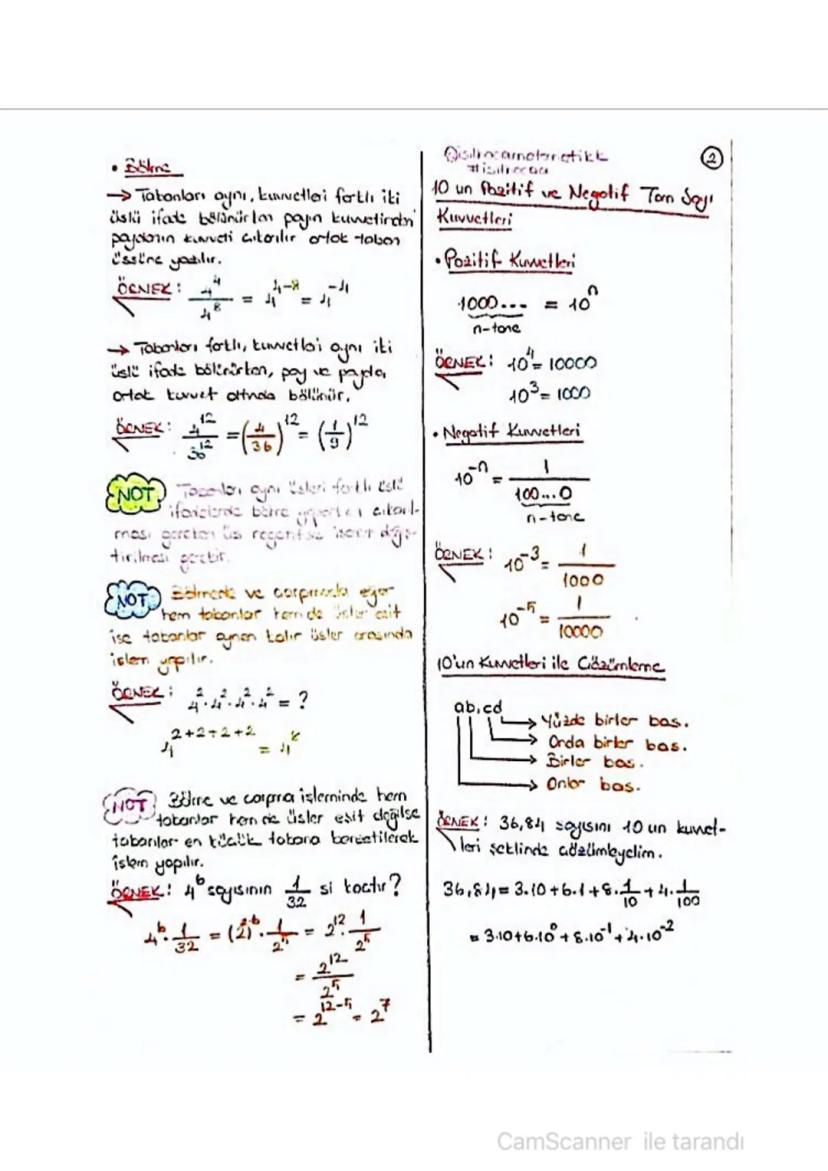 • Bölme
→ Tabanları aynı, kuvvetleri farklı iki
üslü ifade bölünürken payın kuvvetinden
paydanın kuvveti çıkarılır ortak taban
üssüne yazılır.
ÖRNEK: 4^4/4^8 = 4^4-8 = 4^-4
→ Tabanları farklı, kuvvetleri aynı iki
üslü ifade bölünürken, pay ve payda,
ortak kuvvet altında bölünür.
ÖRNEK: 4^12/36^12 = (4/36)^12 = (1/9)^12
NOT Tabanları aynı üsleri farklı üslü
ifadelerde bölme yaparken çıkarıl-
ması gereken üs negatifse işaret değiş-
tirilmesi gerekir.
NOT Bölmede ve çarpmada eğer
hem tabanlar hem de üsler eşit
ise tabanlar aynen kalır üsler arasında
işlem yapılır.
ÖRNEK: 4^2.4^2.4^2.4^2 = ?
4^2+2+2+2 = 4^8
NOT Bölme ve çarpma işleminde hem
tabanlar hem de üsler eşit değilse
tabanlar en küçük tabana benzetilerek
işlem yapılır.
ÖRNEK: 4^6 sayısının 1/32 si kaçtır?
4^6 . 1/32 = (2^2)^6 . 1/2^5 = 2^12 . 1/2^5
= 2^12/2^5
= 2^12-5 = 2^7
2
10 un Pozitif ve Negatif Tam Sayı
Kuvvetleri
• Pozitif Kuvvetleri
1000... = 10^n
n-tane
ÖRNEK: 10^4 = 10000
10^3 = 1000
• Negatif Kuvvetleri
10^-n = 1/100...0
n-tane
ÖRNEK: 10^-3 = 1/1000
10^-5 = 1/10000
10'un Kuvvetleri ile Çözümleme
ab,cd
→ Yüzde birler bas.
→ Onda birler bas.
→ Birler bas.
→ Onlar bas.
ÖRNEK: 36,84 sayısını 10 un kuvvet-
leri şeklinde çözümleyelim.
36,84 = 3.10+6.1+8.1/10+4.1/100
= 3.10+6.10^0+8.10^-1+4.10^-2
CamScanner ile tarandı